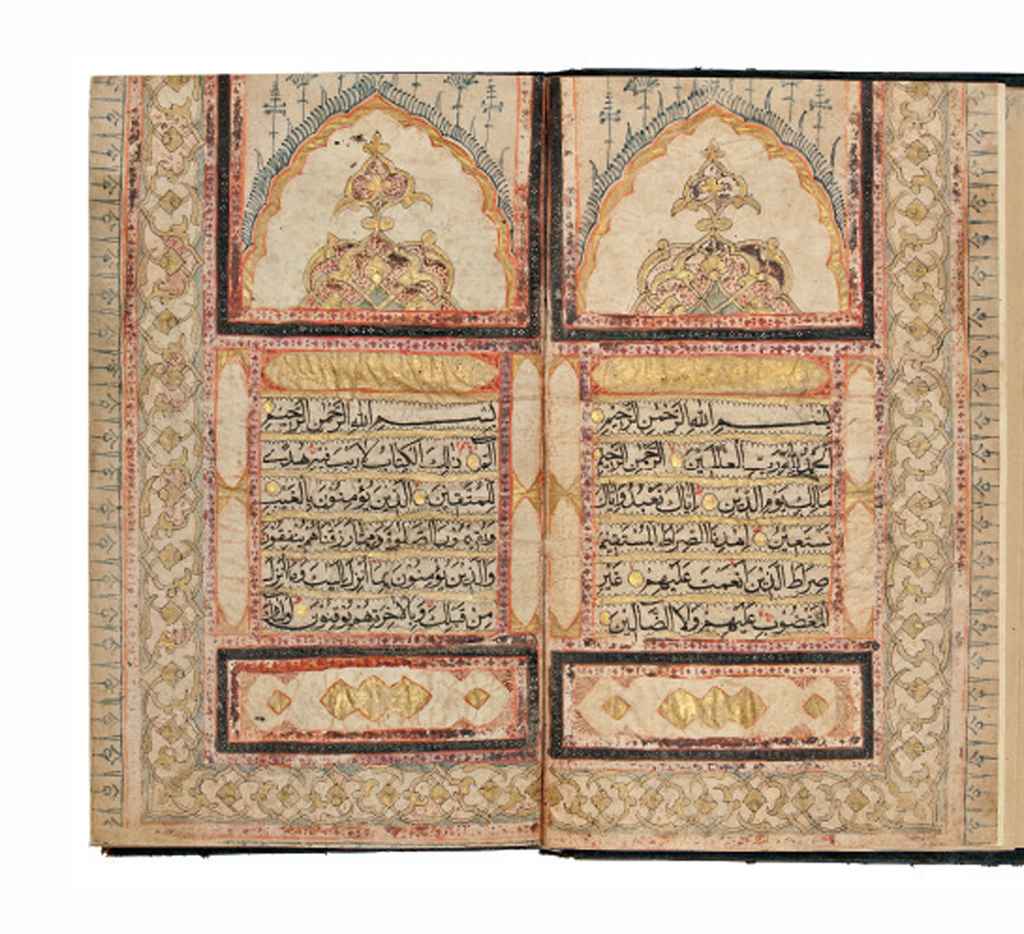 بسم الله الرحمن الرحيم
الحمد لله رب العالمين الرحمن الرحيم
مالك يوم الدين إياك نعبد وإياك
نستعين اهدنا الصراط المستقيم
صراط الذين أنعمت عليهم غير
المغضوب عليهم ولا الضالين
بسم الله الرحمن الرحيم
الم ذلك الكتاب لا ريب فيه هدى
للمتقين الذين يؤمنون بالغيب
ويقيمون الصلوة ومما رزقناهم ينفقون
والذين يؤمنون بما أنزل إليك وما أنزل
من قبلك وبالآخرة هم يوقنون أولئك